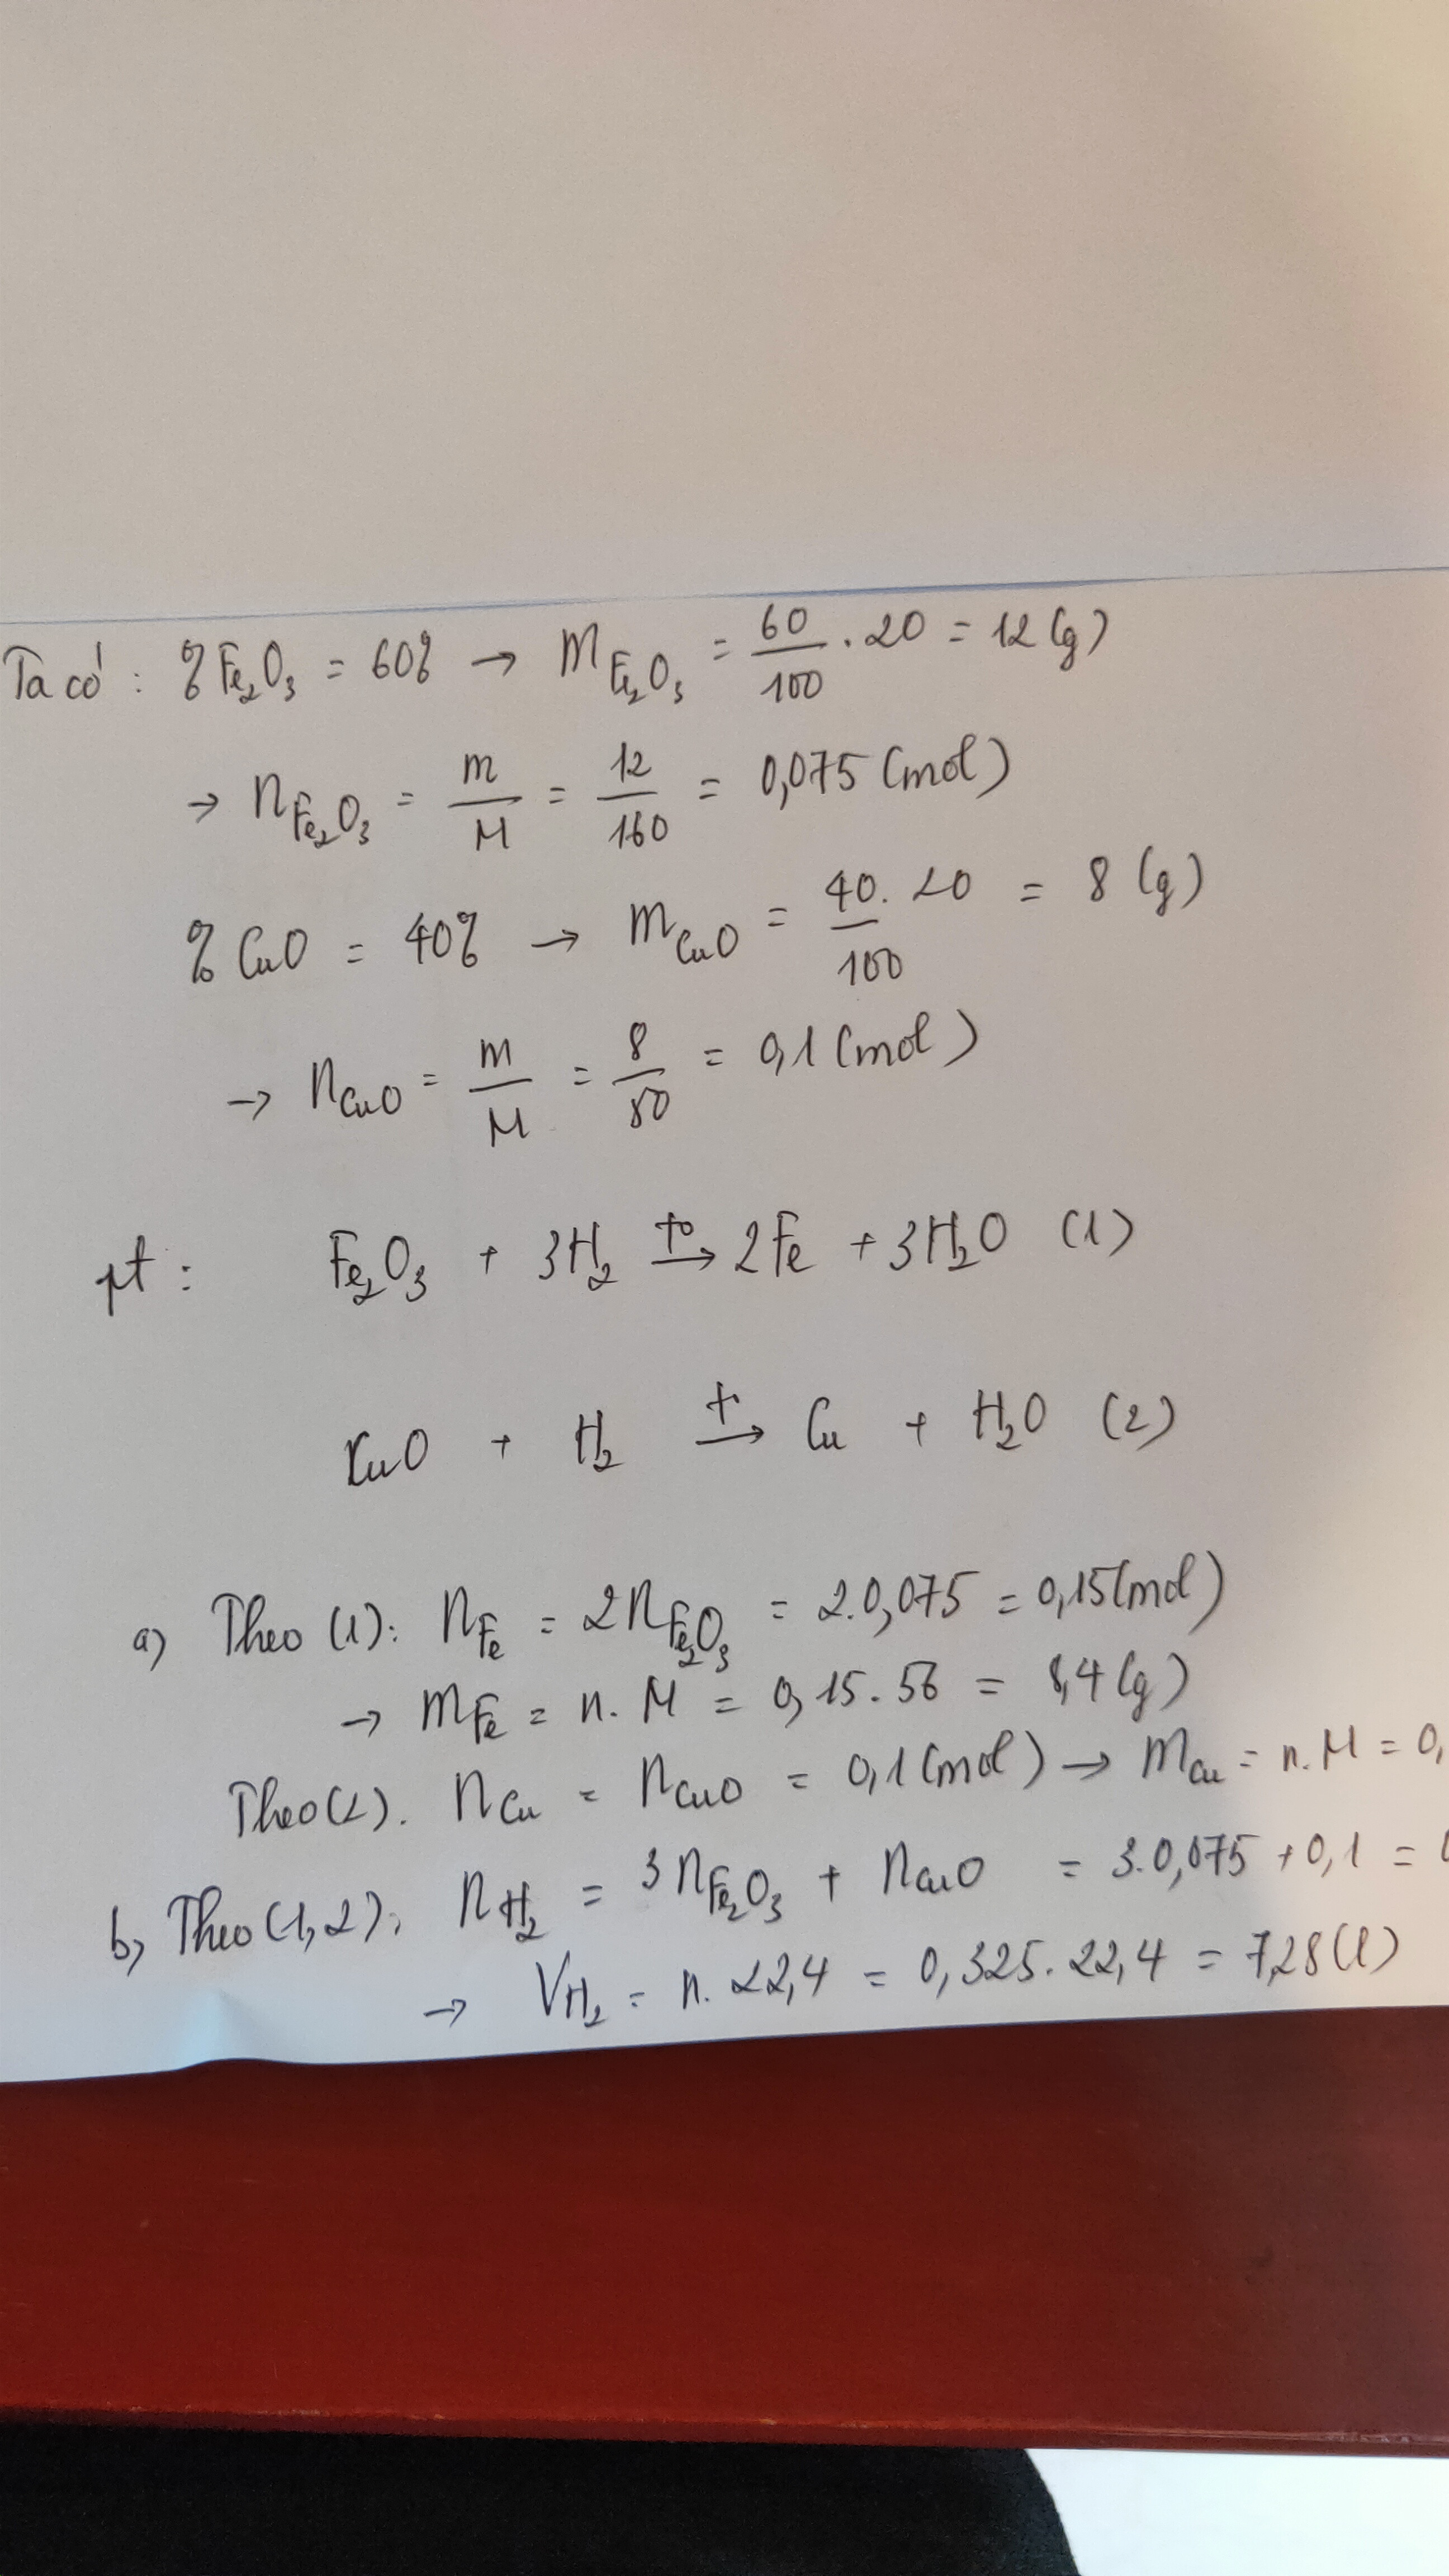 Ta có : % Fe₂O₃ = 60% → m Fe₂O₃ = 60/100 . 20 = 12 (g)
→ n Fe₂O₃ = m/M = 12/160 = 0,075 (mol)
% CuO = 40% → m CuO = 40. 20/100 = 8 (g)
→ n CuO = m/M = 8/80 = 0,1 (mol)
pt : Fe₂O₃ + 3H₂ t° → 2Fe + 3H₂O (1)
CuO + H₂ t° → Cu + H₂O (2)
a) Theo (1): n Fe = 2n Fe₂O₃ = 2.0,075 = 0,15 (mol)
→ m Fe = n. M = 0,15.56 = 8,4 (g)
Theo (2). n Cu = n CuO = 0,1 (mol) → m Cu = n. M = 0,
b) Theo (1,2): n H₂ = 3n Fe₂O₃ + n CuO = 3.0,075 + 0,1 =
→ V H₂ = n. 22,4 = 0,325. 22,4 = 7,28 (l)